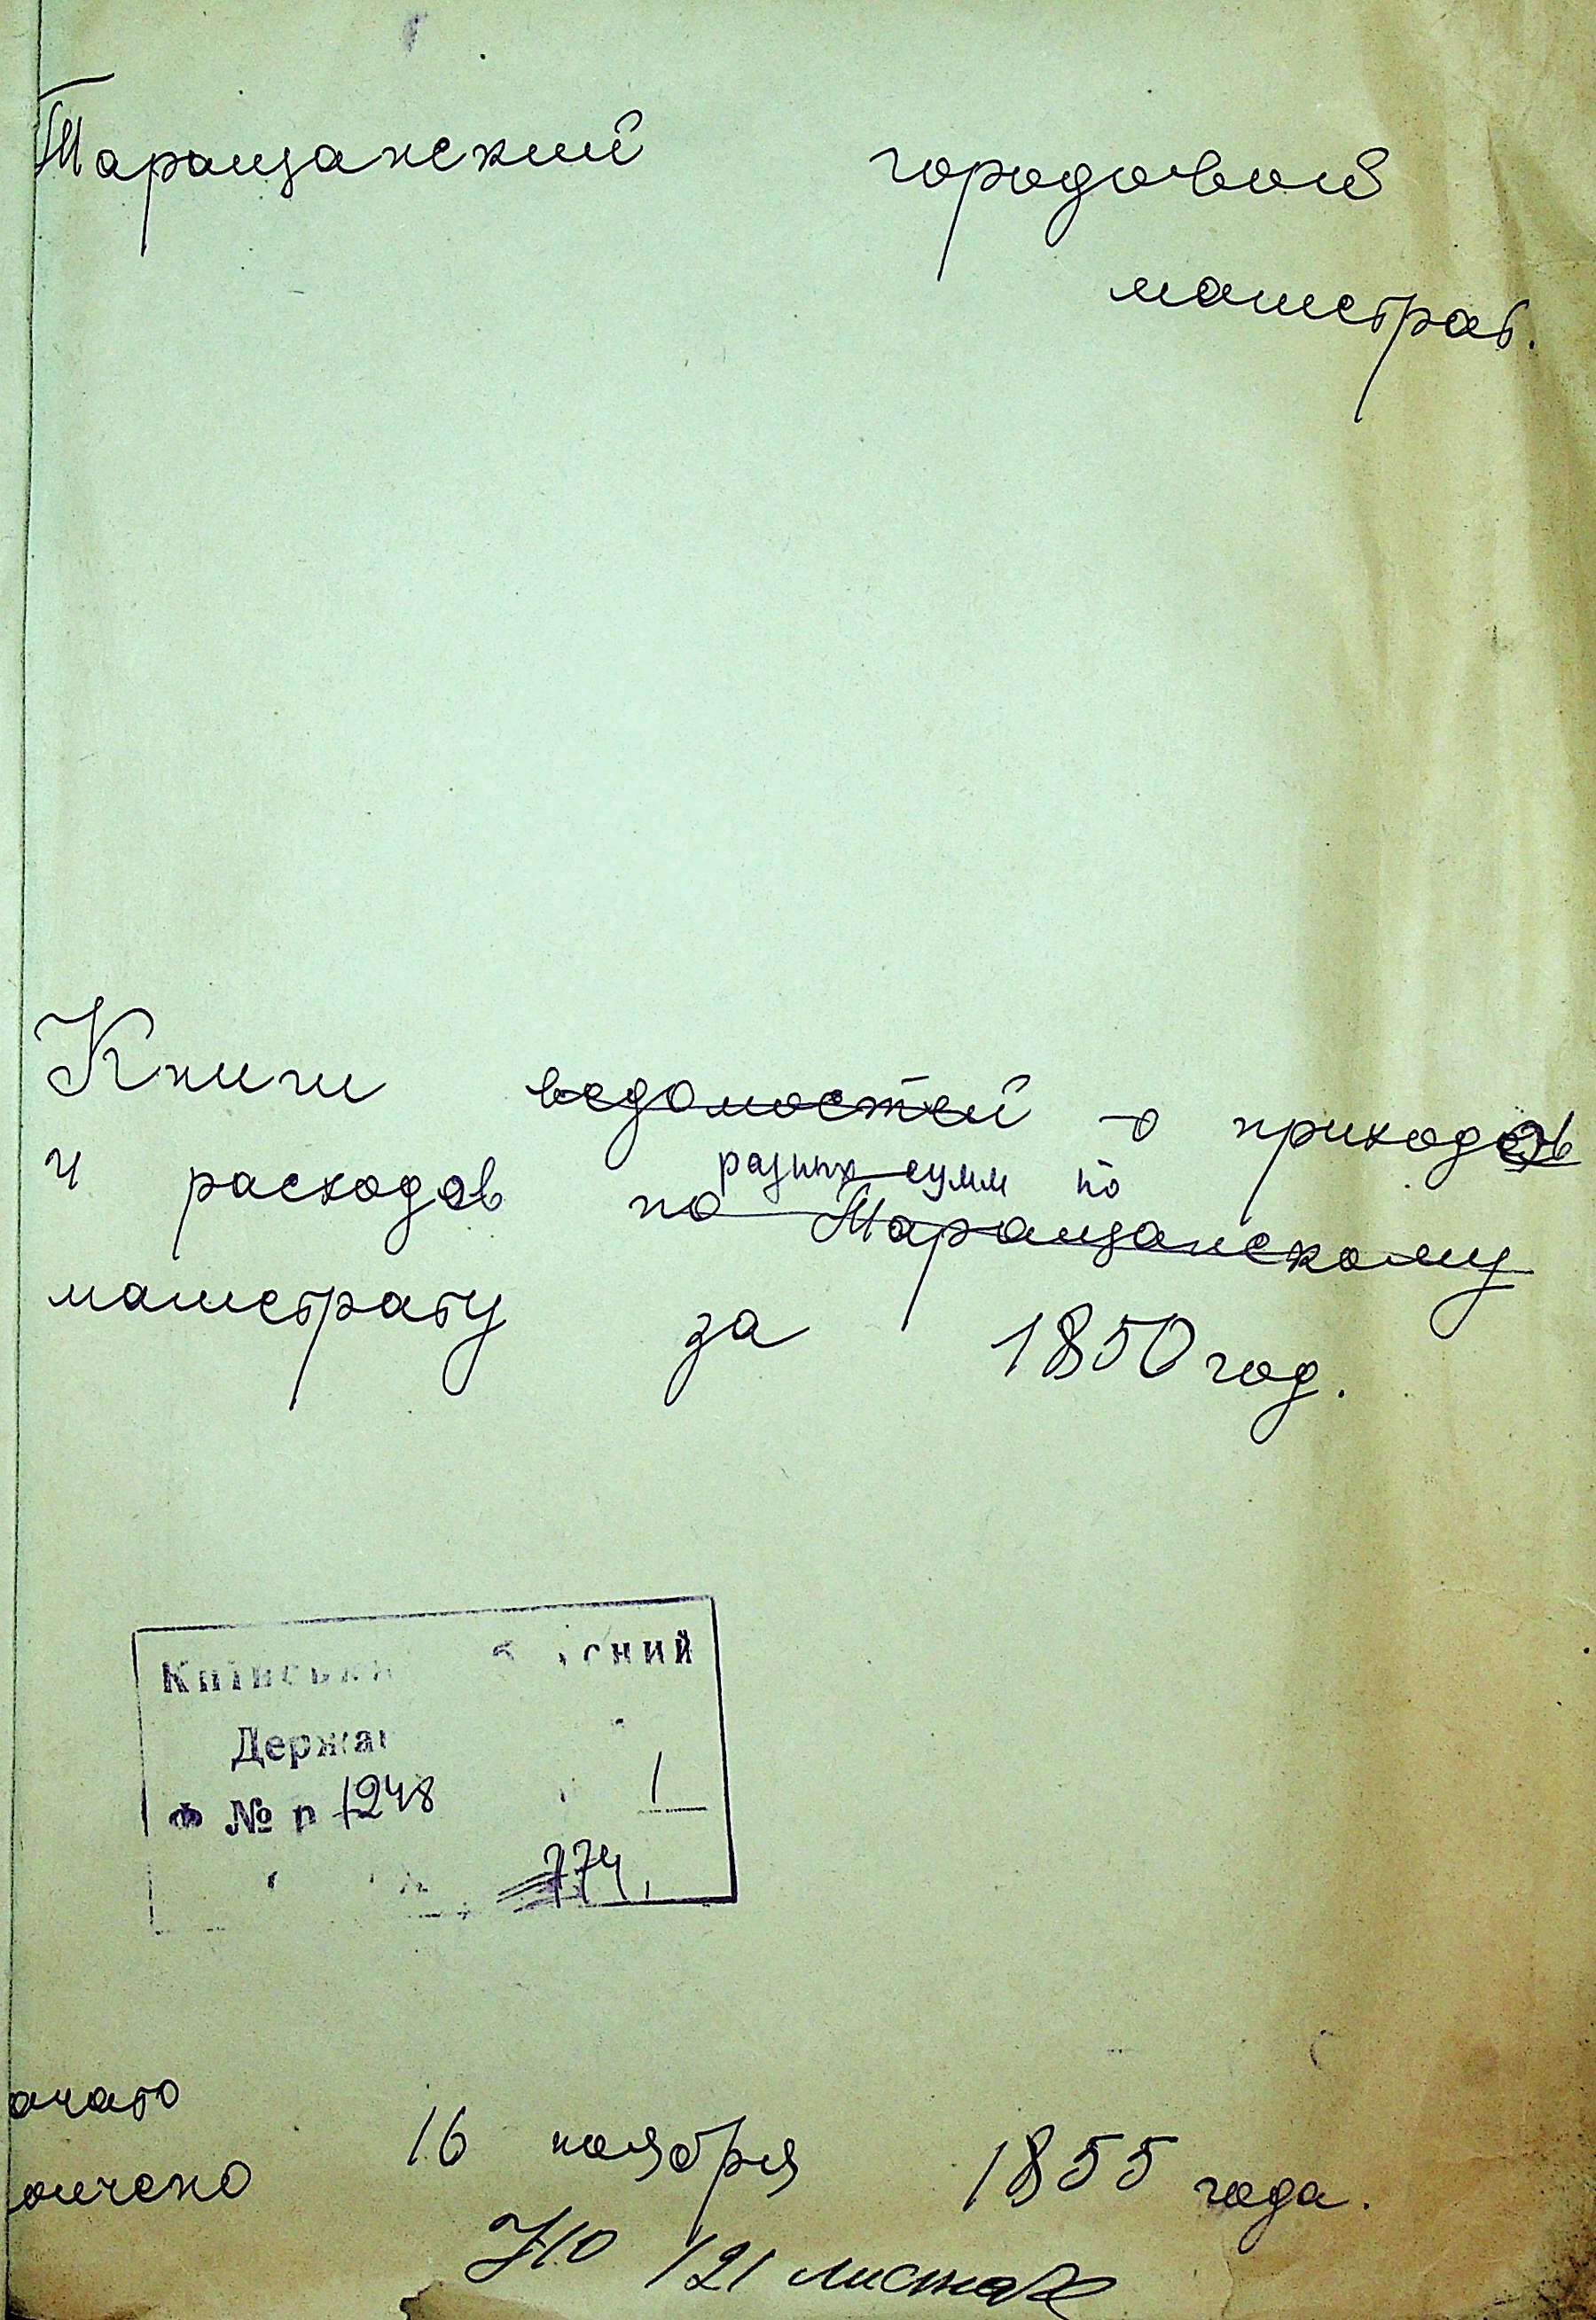 Таращанский городовой
магистрат.
Книги ведомостей о приходов
разных сумм по
и расходов по Таращанскому
магистрату за 1850 год.
Київськи сний
Держа
Ф № р 1248 1
774
ачато
16 ноября 1855 года.
ончено
На 121 листах